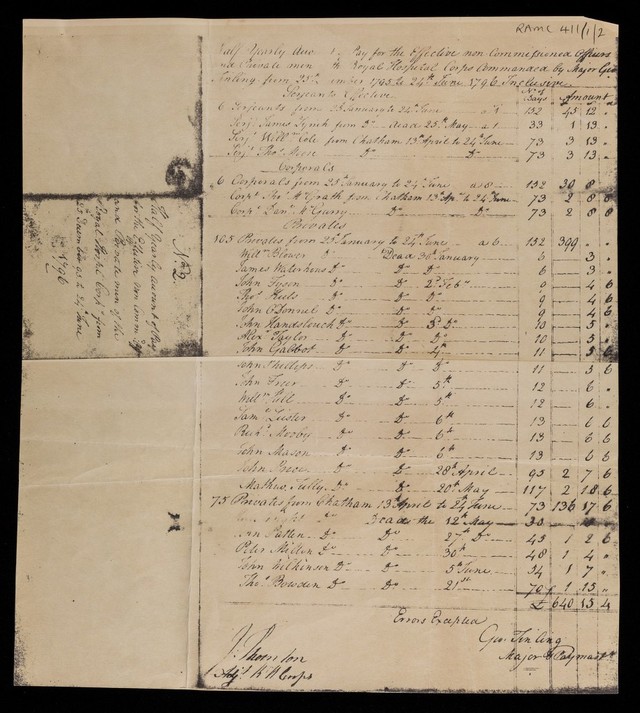 RAMC 411/1/2
Half Yearly Pay for the Effective non Commissioned Officers
Private men Royal Hospital Corps Commanded by Major Geo
Tinling from 25th 1795 to 24th June 1796 Inclusive
Serjeants Effective No. of Days Amount
6 Serjeants from 25 January to 24th June a 1 152 45 12 "
Serj. James Lynch from Do dead 25th May a 1 33 1 13 "
Serj. Willm Cole from Chatham 13th April to 24th June 73 3 13 "
Serj. Thos Do Do 73 3 13 "
Corporals
6 Corporals from 25th January to 24th June a 8 152 30 8 "
Corpl Grath from Chatham 13th Apr. to 24th June 73 2 8 8
Corpl Danl McGurry Do Do 73 2 8 8
Privates
105 Privates from 25th January to 24th June a 6 152 399 " "
Willm Blower D Dead 30th January 6 3 "
James Waterhous Do Do Do 6 3 "
John Tyson Do Do 2d Feby 9 4 6
Thos Keels Do Do Do 9 4 6
John O Donnel Do Do Do 9 4 6
John Do Do 3d Do 10 5 "
Alexr Taylor Do Do Do 10 5 "
John Gabbot Do Do 4th 11 5 6
John Phillips Do Do Do 11 5 6
John Do Do 5th 12 6 "
Willm Do Do 5th 12 6 "
Saml Luster Do Do 6th 13 6 6
Richd Mosby Do Do 6th 13 6 6
John Mason Do Do 6th 13 6 6
John Do Do 28th April 95 2 7 6
Mathew Tully Do Do 20th May 117 2 18 6
73 Privates from Chatham 13th April to 24th June 73 136 17 6
Dead the 12th May
Do Do 27th Do 45 1 2 6
Peter Do Do 30th 48 1 4 "
John Wilkinson Do Do 5th June 54 1 7 "
Thos Bowden Do Do 21st 70 1 15 "
£ 640 13 4
Errors Excepted
Geo. Tinling
Major & Paymaster
Adjt R H Corps
No. 2
Half Yearly account of Pay
for the Effective non Comm Off
and Private men of the
Royal Hospl Corps from
25 December 95 to 24 June
1796